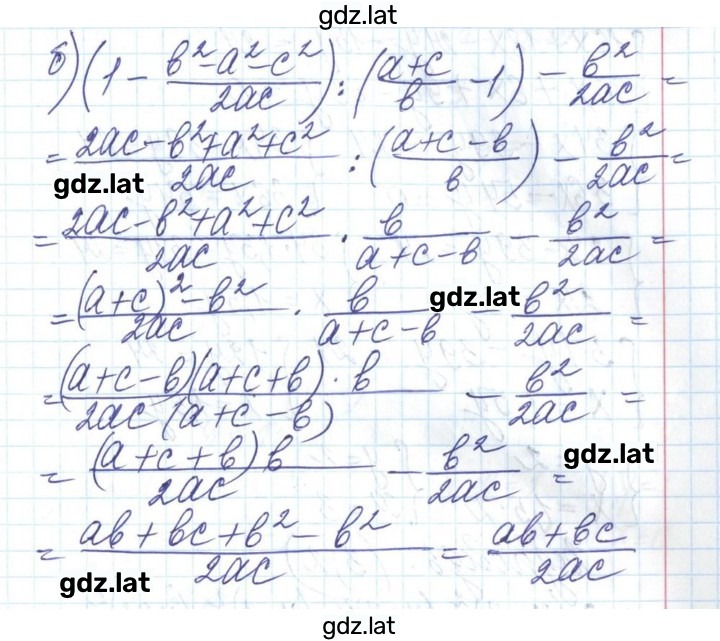 gdz.lat
б) (1 - (в² - a² - c²)/(2ac)) : ((a+c)/в - 1) - в²/(2ac) =
= (2ac - в² + a² + c²)/(2ac) : ((a+c-в)/в) - в²/(2ac) =
gdz.lat
= (2ac - в² + a² + c²)/(2ac) · в/(a+c-в) - в²/(2ac) =
= ((a+c)² - в²)/(2ac) · в/(a+c-в) - в²/(2ac) =
gdz.lat
= ((a+c-в)(a+c+в)·в)/(2ac(a+c-в)) - в²/(2ac) =
= ((a+c+в)в)/(2ac) - в²/(2ac) =
gdz.lat
= (aв + вc + в² - в²)/(2ac) = (aв + вc)/(2ac)
gdz.lat
gdz.lat